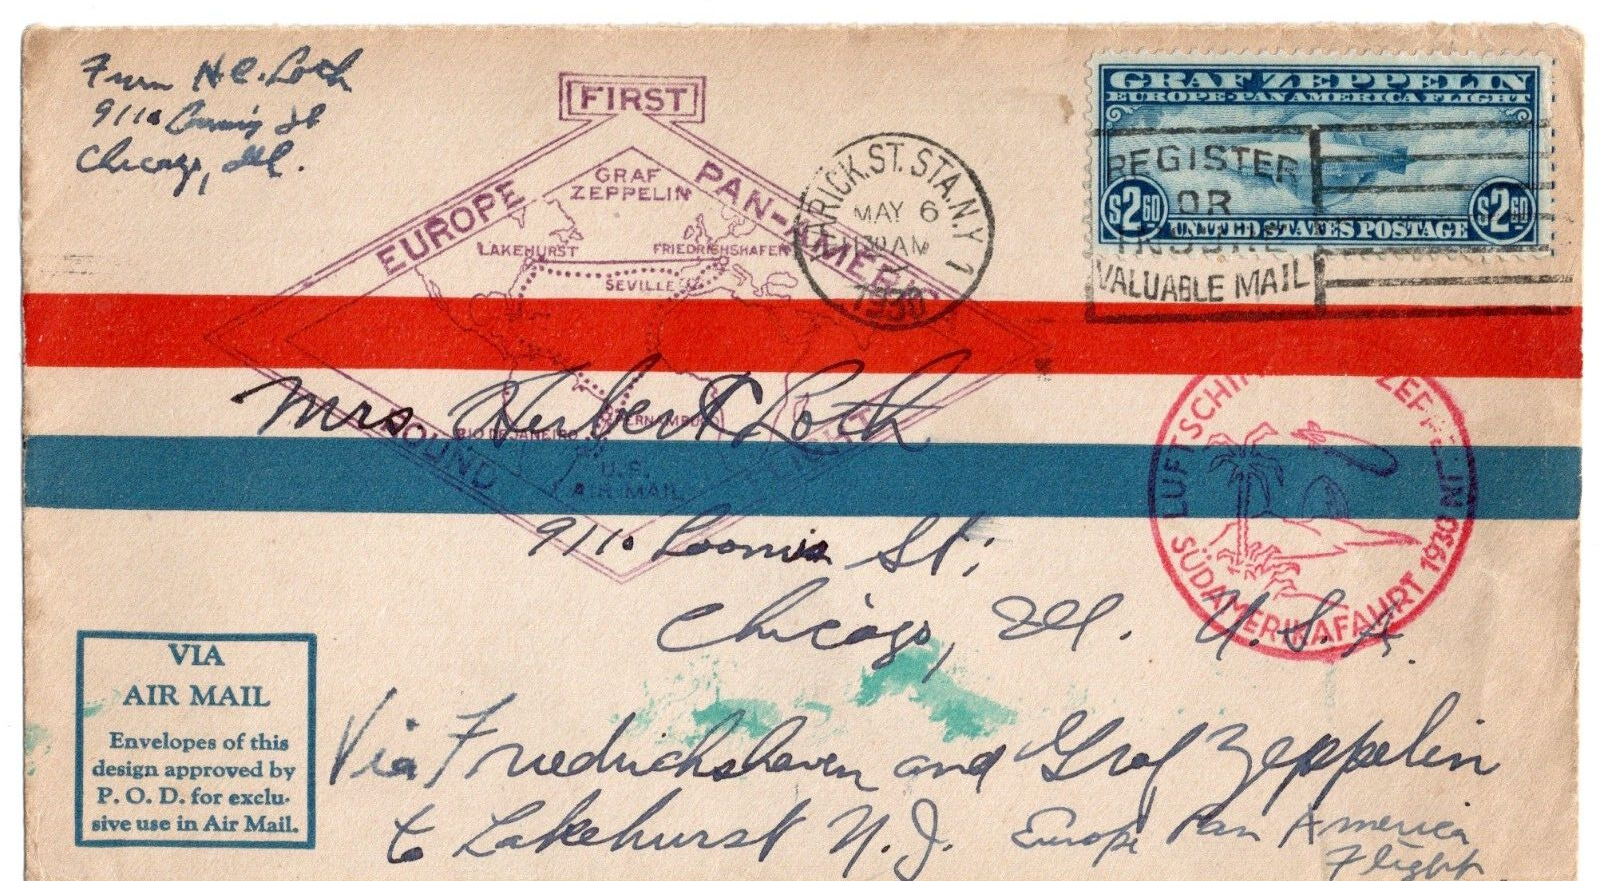 From H. C. Loth
9110 Loomis St
Chicago, Ill.
FIRST
EUROPE PAN-AMERICA
ROUND FLIGHT
GRAF
ZEPPELIN
LAKEHURST FRIEDRICHSHAFEN
SEVILLE
PERNAMBUCO
RIO DE JANEIRO
U.S.
AIR MAIL
RICK. ST. STA. N.Y. 1
MAY 6
AM
1930
GRAF ZEPPELIN
EUROPE-PAN AMERICA FLIGHT
$2 60 $2 60
UNITED STATES POSTAGE
REGISTER
OR
INSURE
VALUABLE MAIL
Mrs Herbert Loth
9110 Loomis St;
Chicago, Ill. U. S. A.
LUFTSCHIFF ZEPPELIN
SÜDAMERIKAFAHRT 1930
VIA
AIR MAIL
Envelopes of this
design approved by
P. O. D. for exclu-
sive use in Air Mail.
Via Friedrichshaven and Graf Zeppelin
to Lakehurst N. J. Europe Pan America
Flight.